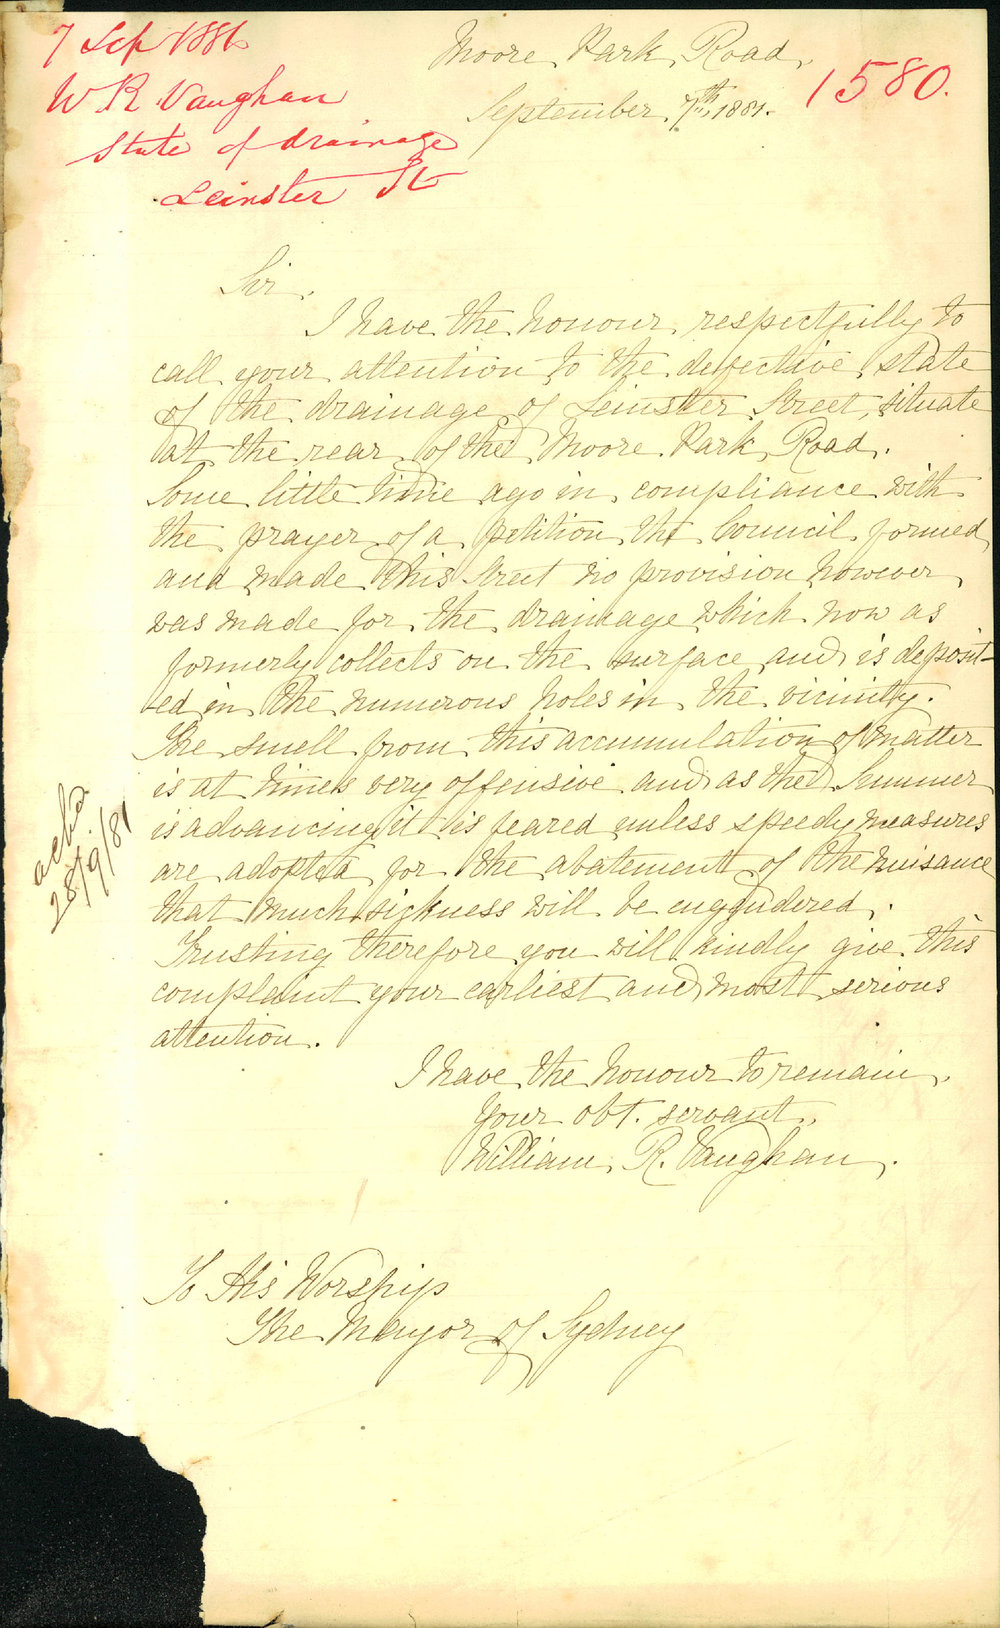 7 Sep 1881
W R Vaughan
State of drainage
Leinster St
Moore Park Road,
September 7th, 1881.
1580.
Sir,
I have the honour respectfully to
call your attention to the defective state
of the drainage of Leinster Street, situate
at the rear of the Moore Park Road.
Some little time ago in compliance with
the prayer of a petition the Council formed
and made this street no provision however
was made for the drainage which now as
formerly collects on the surface and is deposit-
ed in the numerous holes in the vicinity.
The smell from this accumulation of matter
is at times very offensive and as the Summer
is advancing it is feared unless speedy measures
are adopted for the abatement of the nuisance
that much sickness will be engendered.
Trusting therefore you will kindly give this
complaint your earliest and most serious
attention.
I have the honour to remain,
Your obt. servant,
William R. Vaughan.
To His Worship
The Mayor of Sydney
28/9/81